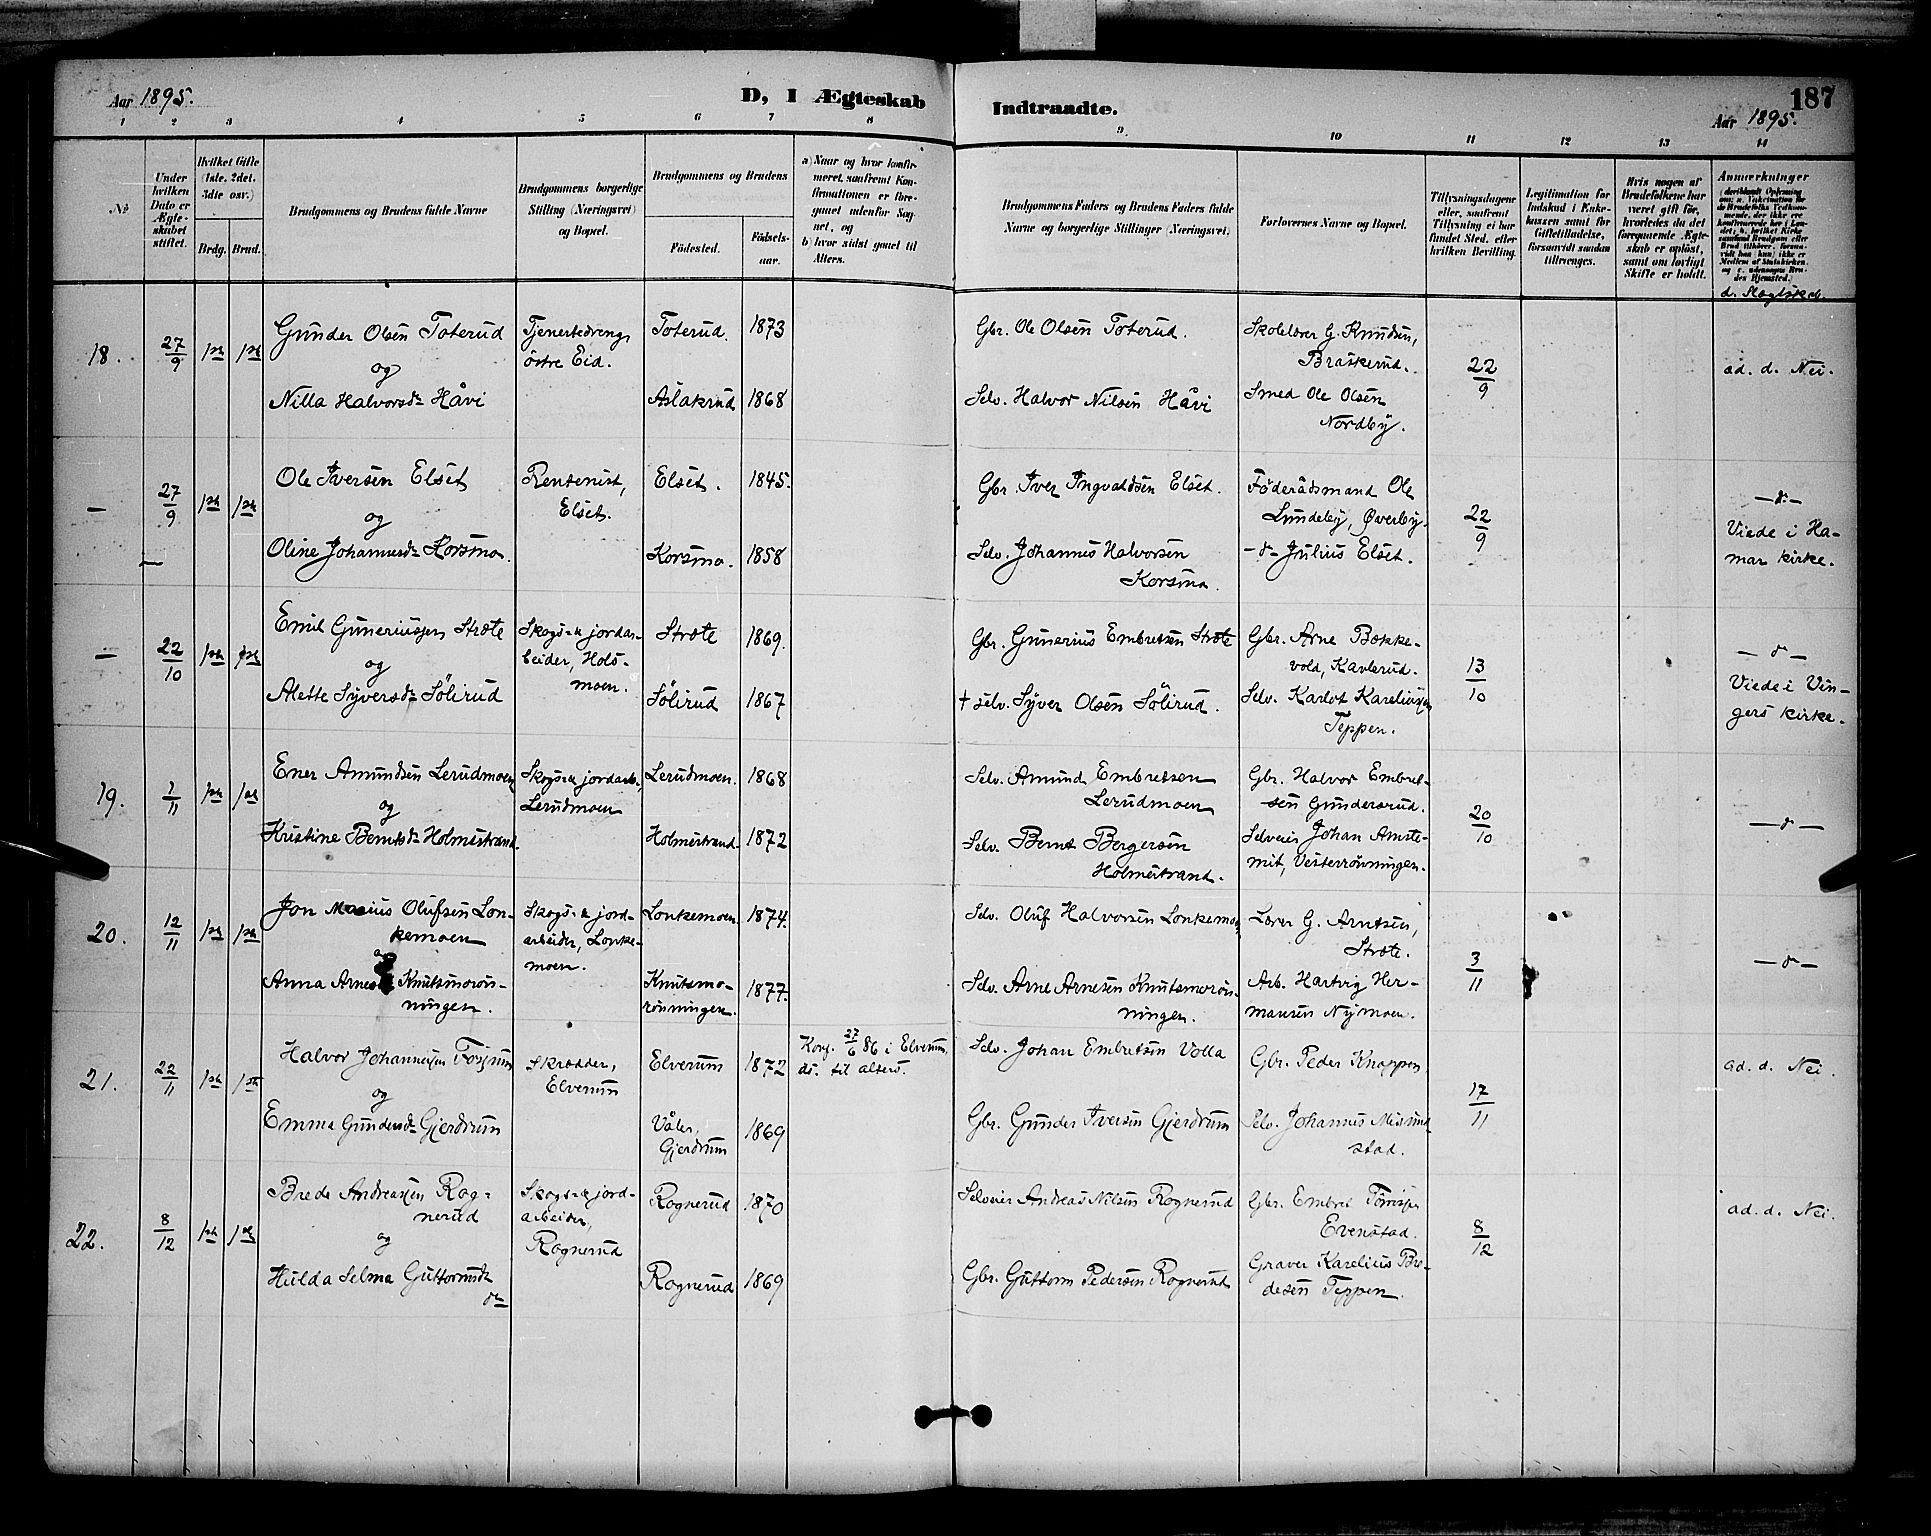 Aar 1895.
D, I Ægteskab
Indtraadte.
187
Aar 1895.
1 2 3 4 5 6 7 8 9. 10 11 12 13 14
№
Under hvilken Dato er Ægteskabet stiftet.
Hvilket Gifte (1ste, 2det, 3die osv.)
Brdg. Brud.
Brudgommens og Brudens fulde Navne
Brudgommens borgerlige Stilling (Næringsvei) og Bopæl.
Brudgommens og Brudens
Födested.
Födsels-aar.
a) Naar og hvor konfirmeret, saafremt Konfirmationen er foregaaet udenfor Sognet, og
b) hvor sidst gaaet til Alters.
Brudgommens Faders og Brudens Faders fulde Navne og borgerlige Stillinger (Næringsvei).
Forlovernes Navne og Bopæl.
Tillysningsdagene eller, saafremt Tillysning ei har fundet Sted, efter hvilken Bevilling.
Legitimation for Indskud i Enkekassen samt for Giftetilladelse, forsaavidt saadan tiltrænges.
Hvis nogen af Brudefolkene har været gift för, hvorledes da det foregaaende Ægteskab er oplöst, samt om lovligt Skifte er holdt.
Anmærkninger
d. Slægtskab.
18. 27/9 1ste 1ste
Gunder Olsen Toterud
og
Nilla Halvorsdr Håvi
Tjenestedreng,
östre Eid.
Toterud. 1873
Aslakrud 1868
Gbr. Ole Olsen Toterud.
Selv. Halvor Nilsen Håvi
Skolelærer G. Knudsen,
Braskerud.
Smed Ole Olsen
Nordby.
22/9
ad. d. Nei.
— 27/9 1ste 1ste
Ole Iversen Elset
og
Oline Johannesdr Korsmo.
Rentenist,
Elset.
Elset. 1845.
Korsmo. 1858
Gbr. Iver Ingvaldsen Elset.
Selv. Johannes Halvorsen
Korsmo.
Föderådsmand Ole
Lundeby, Øverby.
—d— Julius Elset.
22/9
—d—
Viede i Ha-
mar kirke.
— 22/10 1ste 1ste
Emil Guneriussen Stræte
og
Alette Syversdr Sölirud
Skogs- & jordar-
beider, Hols-
moen.
Stræte 1869.
Sölirud 1867
Gbr. Gunerius Embretsen Stræte
† selv. Syver Olsen Sölirud.
Gbr. Arne Bække-
vold, Kavlerud.
Selv. Karlot Kareliussen
Teppen.
13/10
—d—
Viede i Vin-
gers kirke.
19. 1/11 1ste 1ste
Ener Amundsen Lerudmoen
og
Kristine Berntsdr Holmestrand.
Skogs- & jordarb.,
Lerudmoen
Lerudmoen. 1868
Holmestrand. 1872
Selv. Amund Embretsen
Lerudmoen
Selv. Bernt Bergersen
Holmestrand.
Gbr. Halvor Embret-
sen Gundersrud.
Selveier Johan Amste-
mit, Vesterrönningen.
20/10
—d—
20. 12/11 1ste 1ste
Jon Masius Olufsen Lon-
kemoen
og
Anna Arnesdr Knutsmorön-
ningen.
Skogs- & jord-
arbeider, Lonke-
moen.
Lonkemoen 1874.
Knutsmo-
rönningen. 1877.
Selv. Oluf Halvorsen Lonkemoen
Selv. Arne Arnesen Knutsmorön-
ningen.
Lærer G. Arntsen,
Stræte.
Arb. Hartvig Her-
mansen Nymoen.
3/11
—d—
21. 22/11 1ste 1ste
Halvor Johannesen Forsum
og
Emma Gundersdr Gjerdrum
Skrædder,
Elverum
Elverum 1872
Våler,
Gjerdrum 1869
Konf. 27/6 86 i Elverum,
do. til alters.
Selv. Johan Embretsen Volla
Gbr. Gunder Iversen Gjerdrum
Gbr. Peder Knappen
Selv. Johannes Mesund
stad.
17/11
ad. d. Nei.
22. 8/12 1ste 1ste
Brede Andreassen Rog-
nerud
og
Hulda Selma Guttormsdr
do
Skogs- & jord-
arbeider,
Rognerud
Rognerud 1870
Rognerud 1869
Selveier Andreas Nilsen Rognerud
Gbr. Guttorm Pedersen Rognerud
Gbr. Embret Tönnsen
Evenstad.
Graver Karelius Bre-
desen Teppen.
8/12
ad. d. Nei.